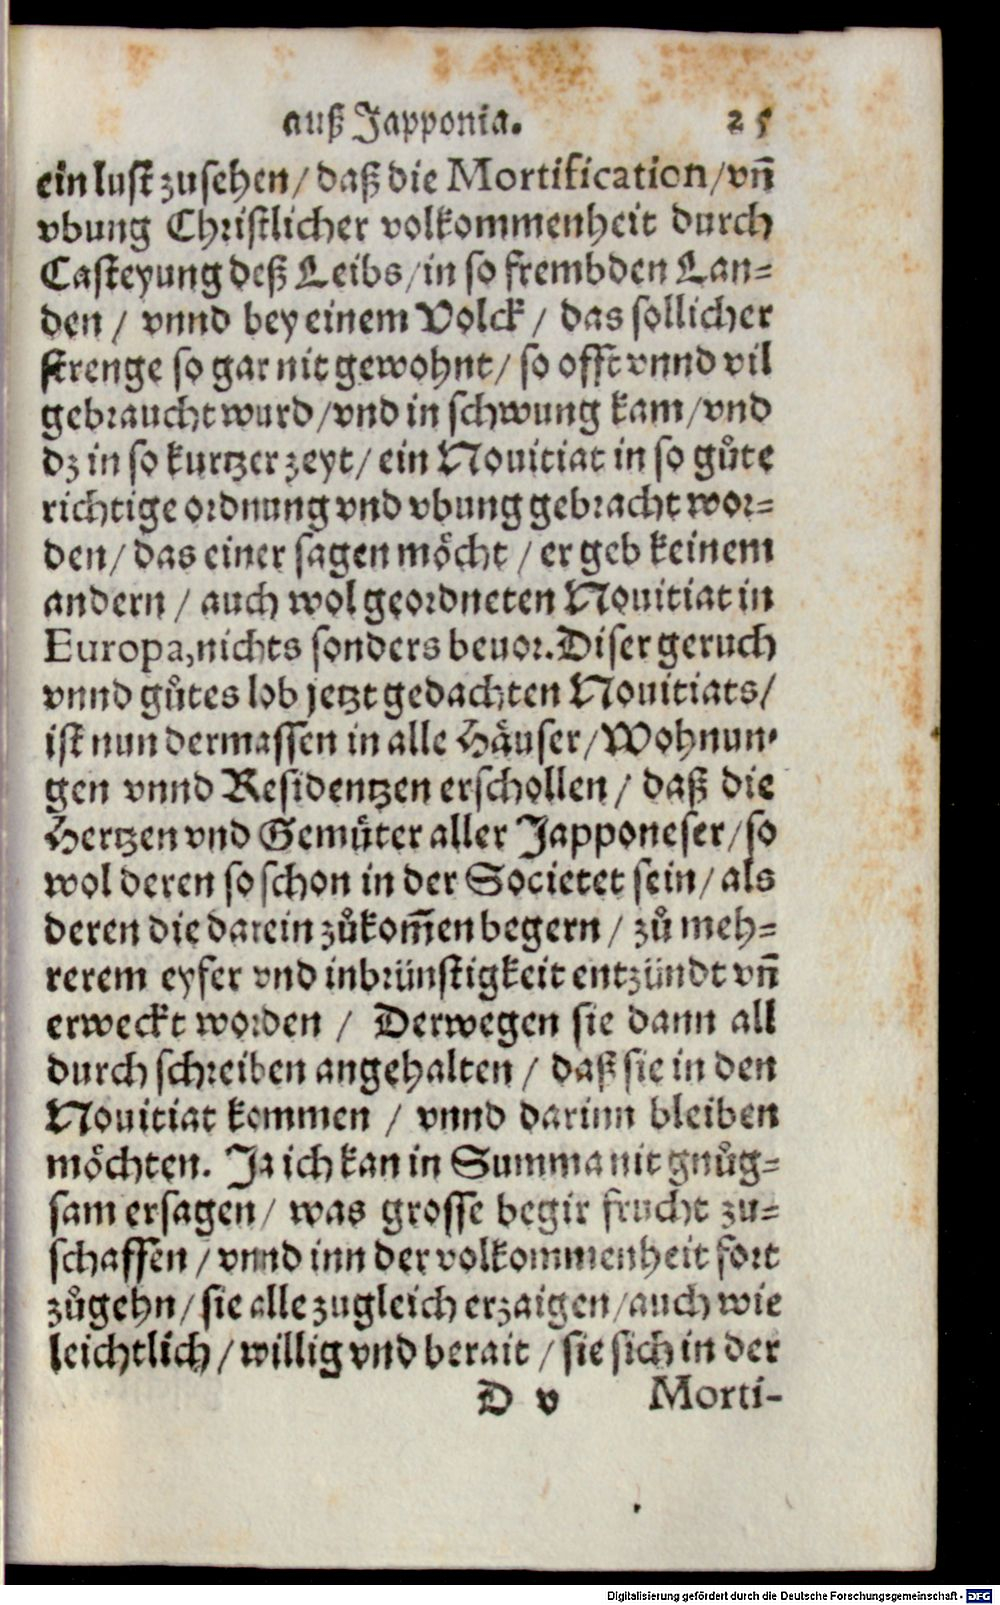 auß Japponia. 25
ein lust zusehen / daß die Mortification / vñ
vbung Christlicher volkommenheit durch
Casteyung deß Leibs / in so frembden Lan=
den / vnnd bey einem Volck / das sollicher
strenge so gar nit gewohnt / so offt vnnd vil
gebraucht wurd / vnd in schwung kam / vnd
dz in so kurtzer zeyt / ein Nouitiat in so gůte
richtige ordnung vnd vbung gebracht wor=
den / das einer sagen möcht / er geb keinem
andern / auch wol geordneten Nouitiat in
Europa, nichts sonders beuor. Diser geruch
vnnd gůtes lob jetzt gedachten Nouitiats /
ist nun dermassen in alle Häuser / Wohnun=
gen vnnd Residentzen erschollen / daß die
Hertzen vnd Gemüter aller Japponeser / so
wol deren so schon in der Societet sein / als
deren die darein zůkom̃en begern / zů meh=
rerem eyfer vnd inbrünstigkeit entzündt vñ
erweckt worden / Derwegen sie dann all
durch schreiben angehalten / daß sie in den
Nouitiat kommen / vnnd darinn bleiben
möchten. Ja ich kan in Summa nit gnůg=
sam ersagen / was grosse begir frucht zu=
schaffen / vnnd inn der volkommenheit fort
zůgehn / sie alle zugleich erzaigen / auch wie
leichtlich / willig vnd berait / sie sich in der
D v Morti-
Digitalisierung gefördert durch die Deutsche Forschungsgemeinschaft - DFG